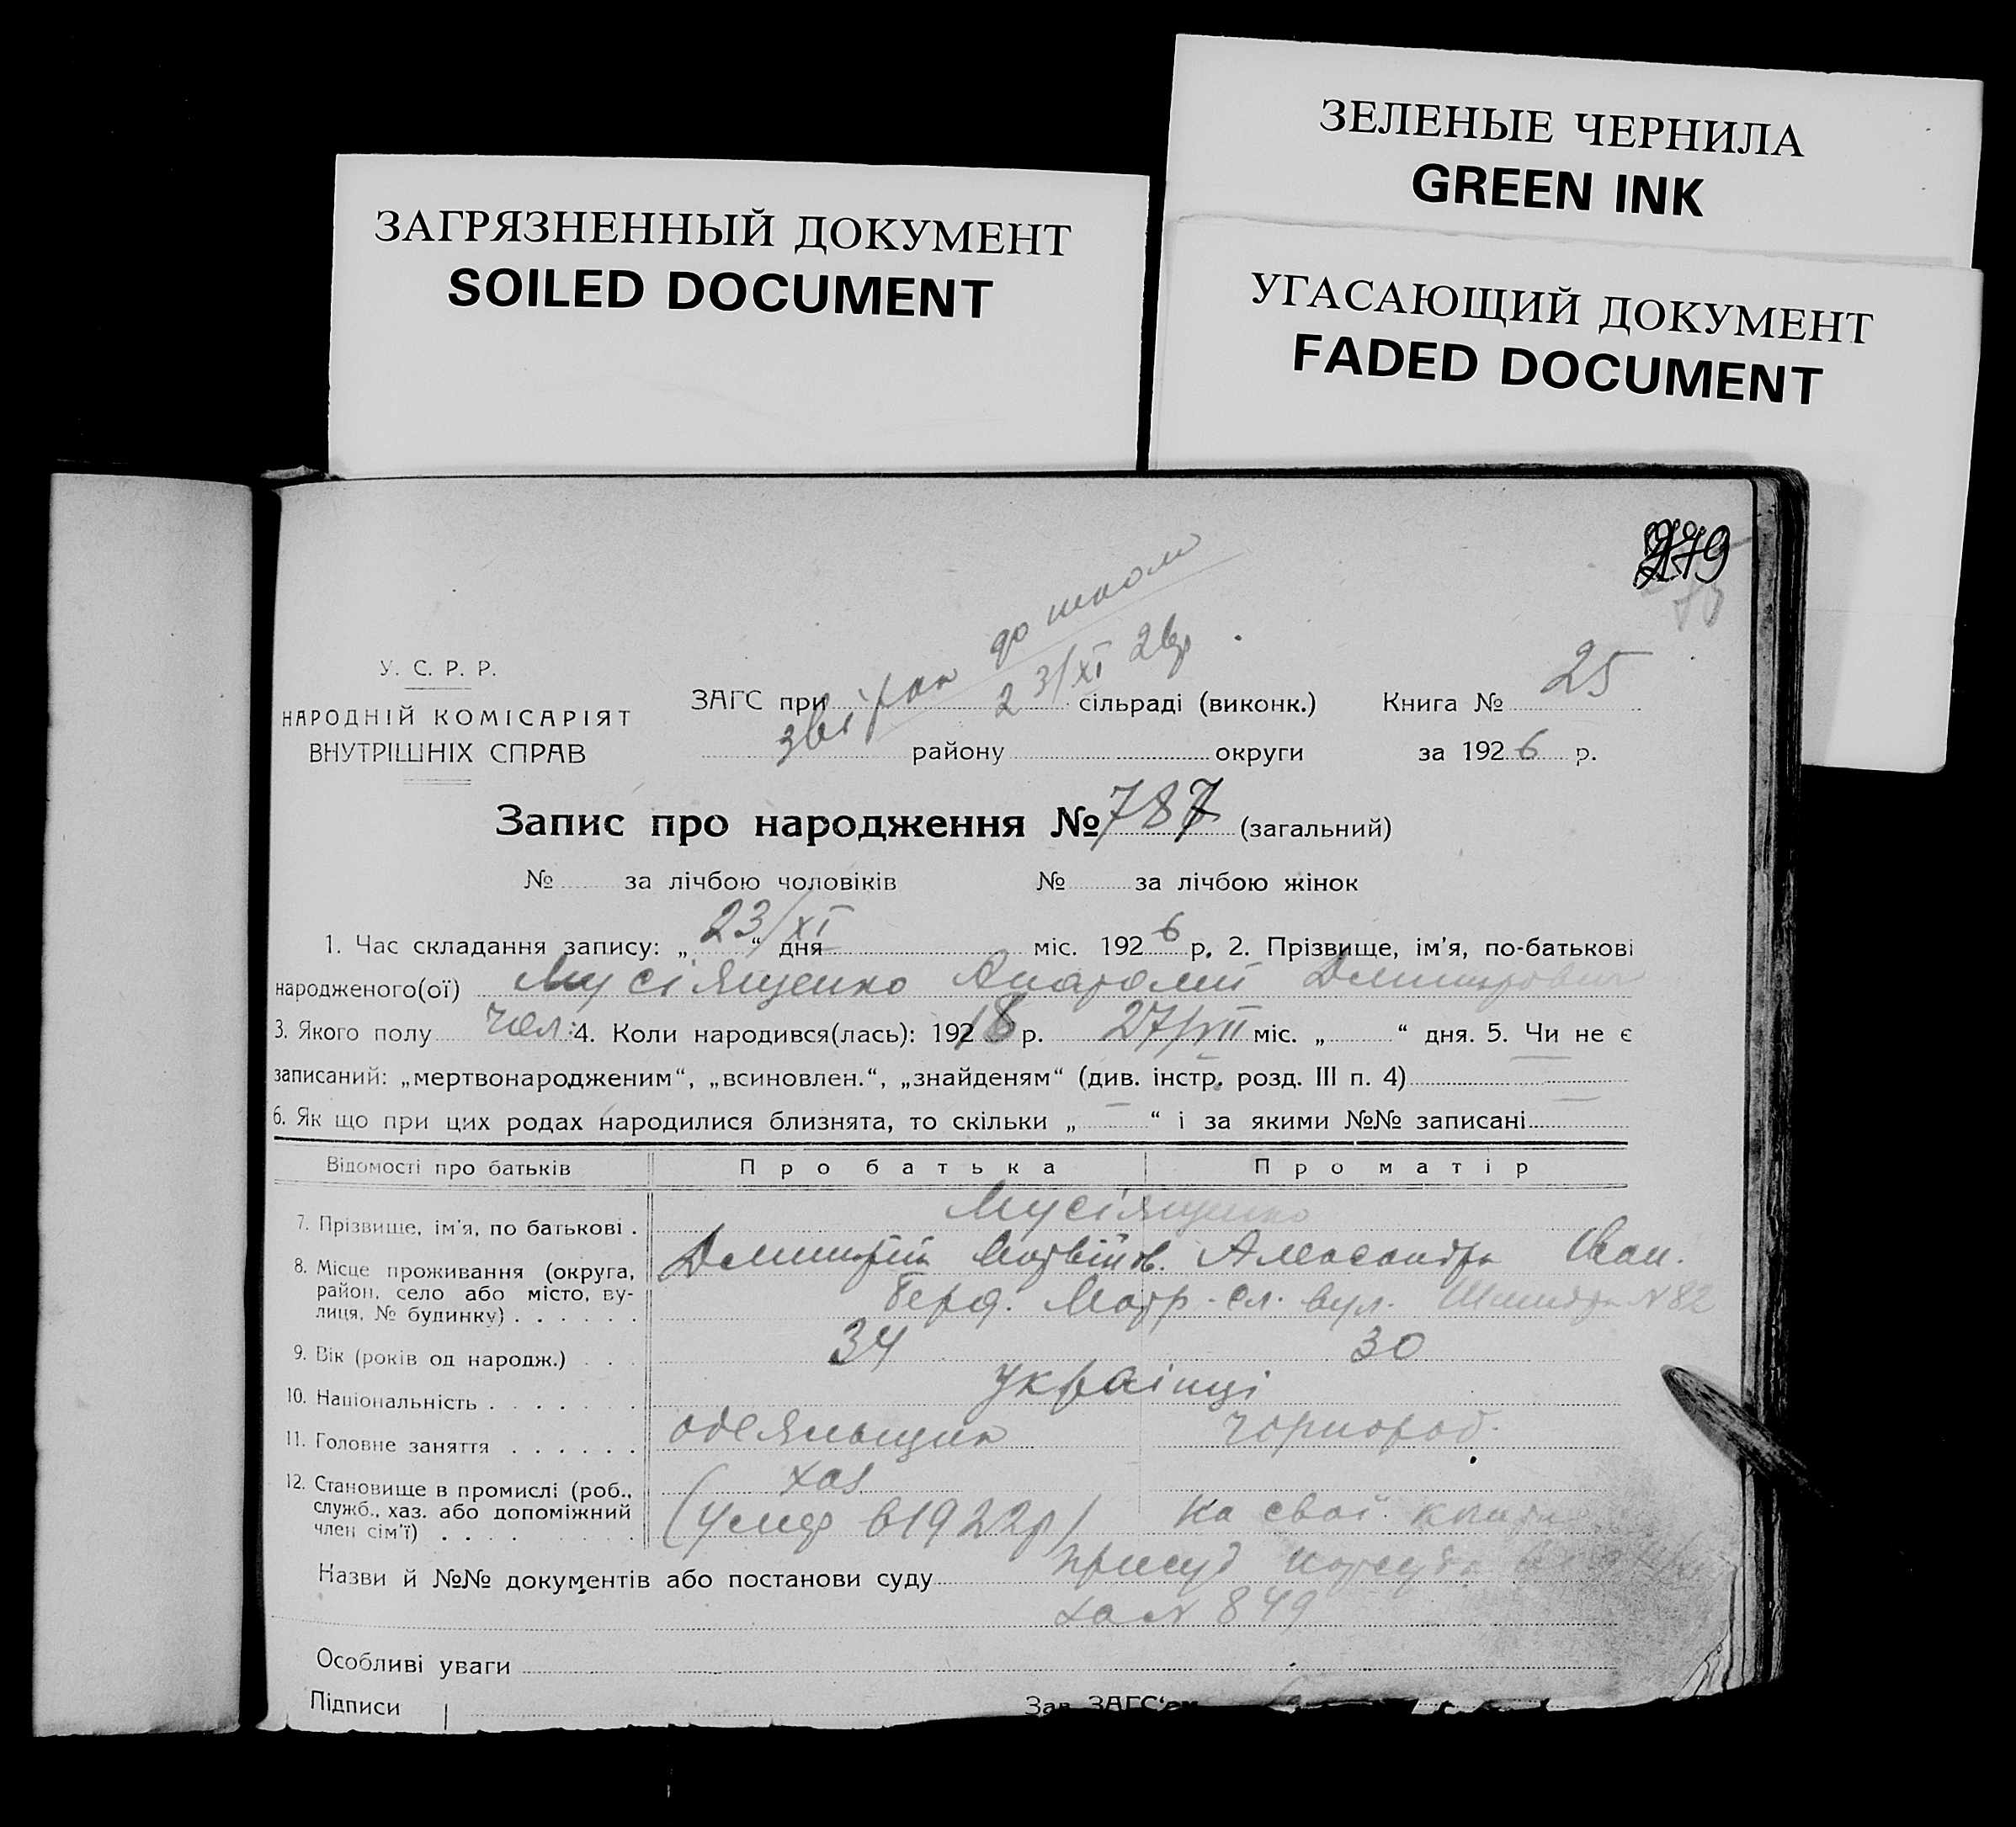 ЗЕЛЕНЫЕ ЧЕРНИЛА
GREEN INK
ЗАГРЯЗНЕННЫЙ ДОКУМЕНТ
SOILED DOCUMENT
УГАСАЮЩИЙ ДОКУМЕНТ
FADED DOCUMENT
279
до школи
23/XI 26р
У. С. Р. Р.
НАРОДНІЙ КОМІСАРІЯТ
ВНУТРІШНІХ СПРАВ
ЗАГС при сільраді (виконк.) Книга № 25
району округи за 1926 р.
Запис про народження № 787 (загальний)
№ за лічбою чоловіків № за лічбою жінок
1. Час складання запису: „23/XI“ дня міс. 1926 р. 2. Прізвище, ім'я, по-батькові
народженого(ої) Мусіященко Анатолий Дмитрович
3. Якого полу чол: 4. Коли народився(лась): 1918 р. 27/VII міс. „ “ дня. 5. Чи не є
записаний: „мертвонародженим“, „всиновлен.“, „знайденям“ (див. інстр. розд. III п. 4)
6. Як що при цих родах народилися близнята, то скільки „—“ і за якими №№ записані —
Відомості про батьків Про батька Про матір
7. Прізвище, ім'я, по батькові . Мусіященко
Дмитрий Матвійов. Александра Іван.
8. Місце проживання (округа,
район, село або місто, ву-
лиця, № будинку) . . . . . . Берд. Матр-сл. вул. Шмидта N 82
9. Вік (років од народж.) . . . 34 30
10. Національність . . . . . . . Українці
11. Головне заняття . . . . . . одеяльщик чорнороб.
12. Становище в промислі (роб., хаз
служб., хаз. або допоміжний
член сім'ї) . . . . (умер в 1922р) на своі
Назви й №№ документів або постанови суду присуд нарсуда
N 849
Особливі уваги
Підписи Зав. ЗАГС'ом